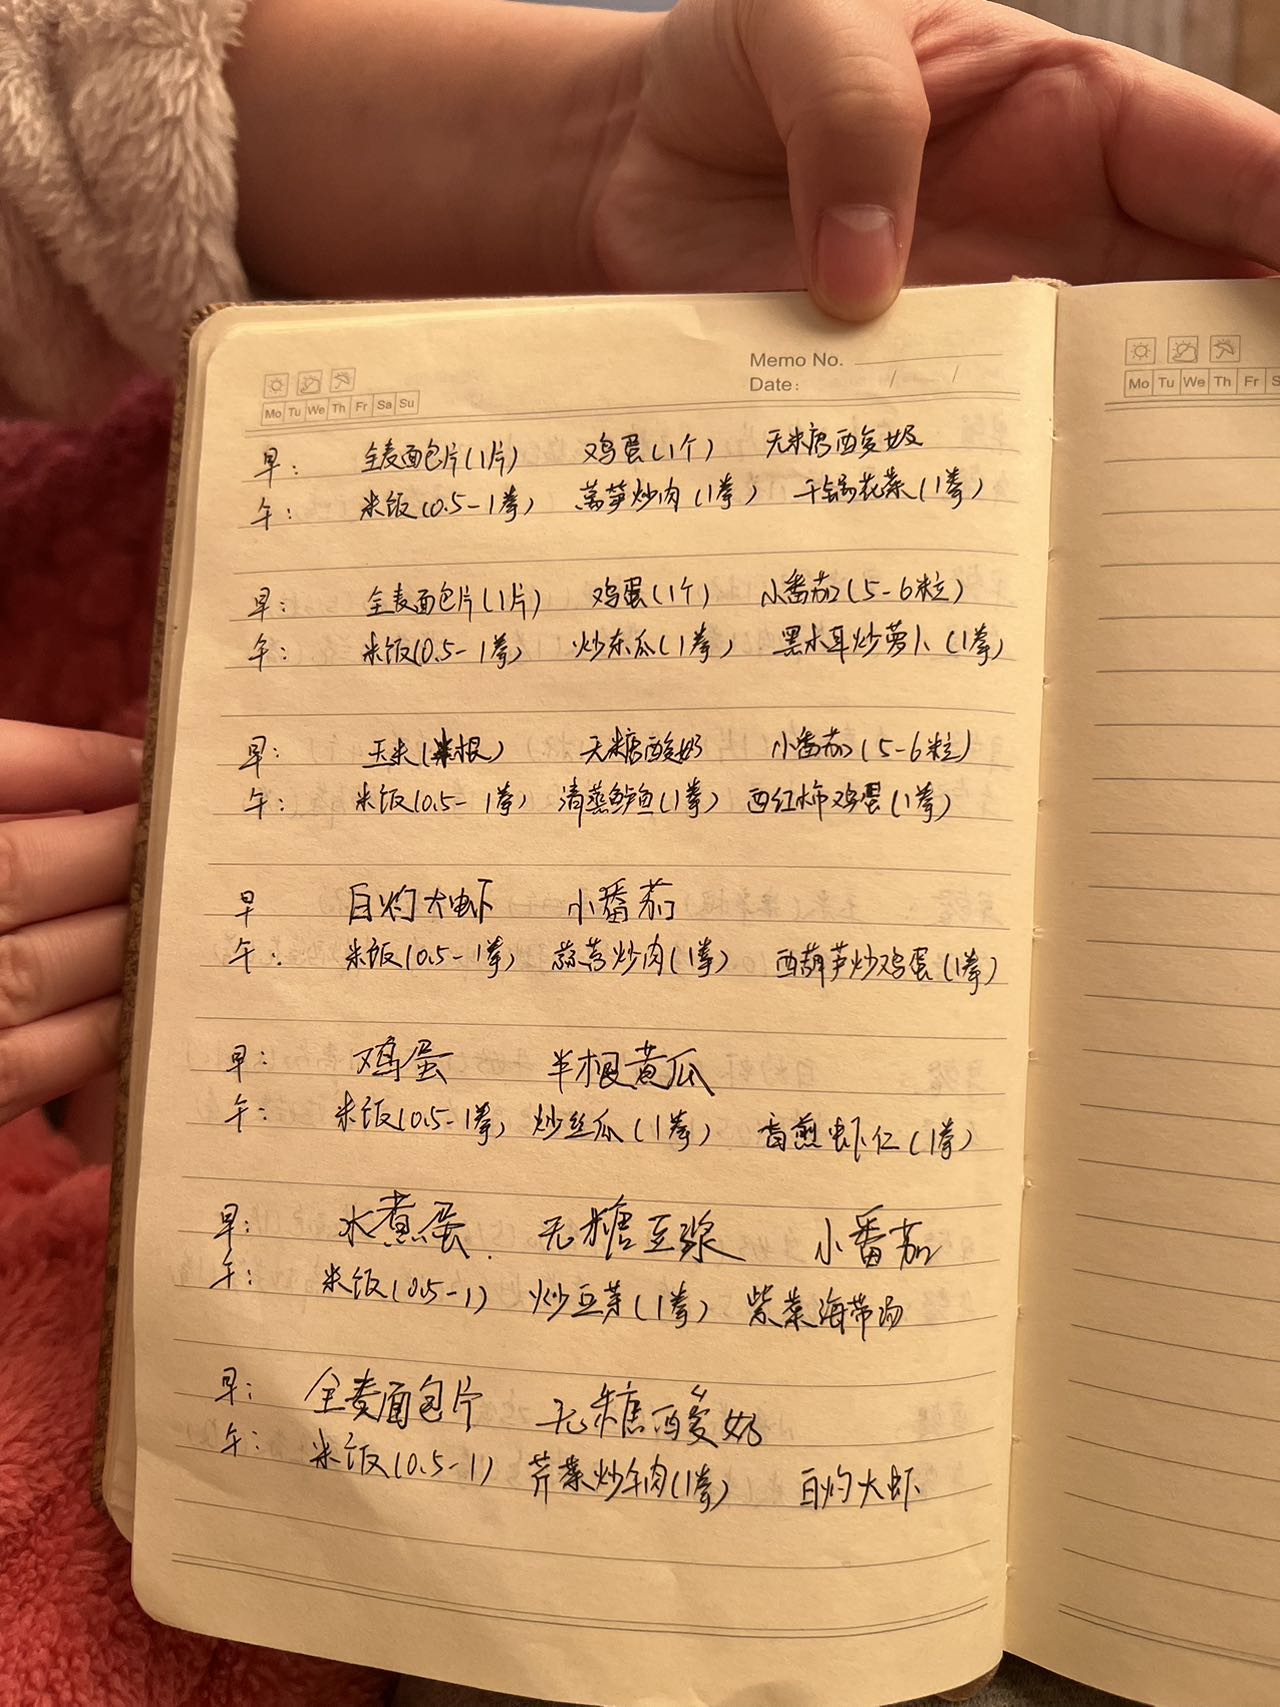 Memo No.
Date: / /
Mo Tu We Th Fr Sa Su
Mo Tu We Th Fr S
早: 全麦面包片(1片) 鸡蛋(1个) 无糖酸奶
午: 米饭(0.5-1拳) 莴笋炒肉(1拳) 干锅花菜(1拳)
早: 全麦面包片(1片) 鸡蛋(1个) 小番茄(5-6粒)
午: 米饭(0.5-1拳) 炒东瓜(1拳) 黑木耳炒萝卜(1拳)
早: 玉米(半根) 无糖酸奶 小番茄(5-6粒)
午: 米饭(0.5-1拳) 清蒸鲈鱼(1拳) 西红柿鸡蛋(1拳)
早 白灼大虾 小番茄
午: 米饭(0.5-1拳) 蒜苔炒肉(1拳) 西葫芦炒鸡蛋(1拳)
早: 鸡蛋 半根黄瓜
午: 米饭(0.5-1拳) 炒丝瓜(1拳) 香煎虾仁(1拳)
早: 水煮蛋 无糖豆浆 小番茄
午: 米饭(0.5-1) 炒豆芽(1拳) 紫菜海带汤
早: 全麦面包片 无糖酸奶
午: 米饭(0.5-1) 芹菜炒牛肉(1拳) 白灼大虾